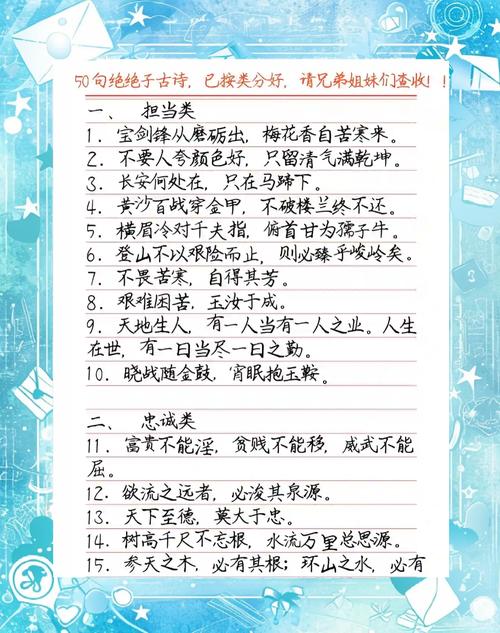 50句绝绝子古诗，已按类分好，请兄弟姐妹们查收！！
一、 担当类
1. 宝剑锋从磨砺出，梅花香自苦寒来。
2. 不要人夸颜色好，只留清气满乾坤。
3. 长安何处在，只在马蹄下。
4. 黄沙百战穿金甲，不破楼兰终不还。
5. 横眉冷对千夫指，俯首甘为孺子牛。
6. 登山不以艰险而止，则必臻乎峻岭矣。
7. 不畏苦寒，自得其芳。
8. 艰难困苦，玉汝于成。
9. 天地生人，有一人当有一人之业。人生
在世，有一日当尽一日之勤。
10. 晓战随金鼓，宵眠抱玉鞍。
二、 忠诚类
11. 富贵不能淫，贫贱不能移，威武不能
屈。
12. 欲流之远者，必浚其泉源。
13. 天下至德，莫大于忠。
14. 树高千尺不忘根，水流万里总思源。
15. 参天之木，必有其根；环山之水，必有